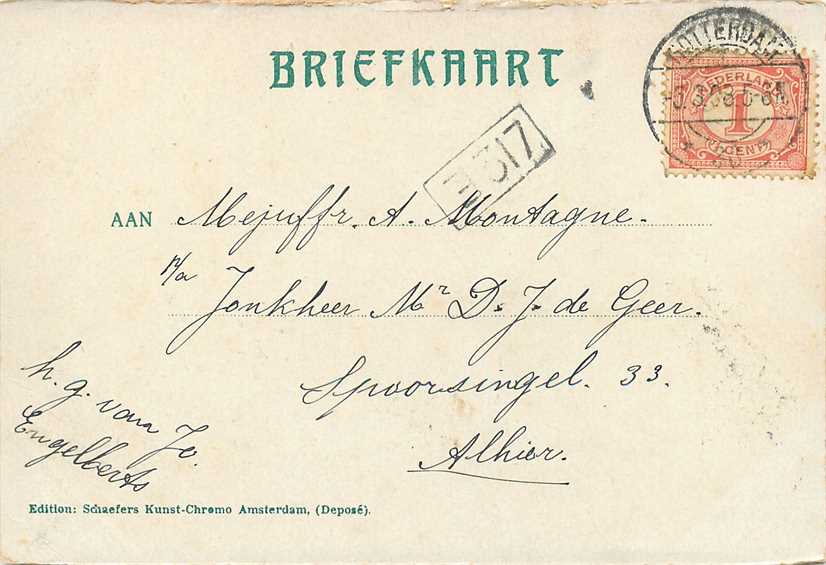 BRIEFKAART
ROTTERDAM
NEDERLAND
1
CENT
317
AAN Mejuffr. A. Montagne.
p/a
Jonkheer Mr D. J. de Geer.
Spoorsingel. 33.
Alhier.
h. g. van Jo.
Engelberts
Edition: Schaefers Kunst-Chromo Amsterdam, (Deposé).